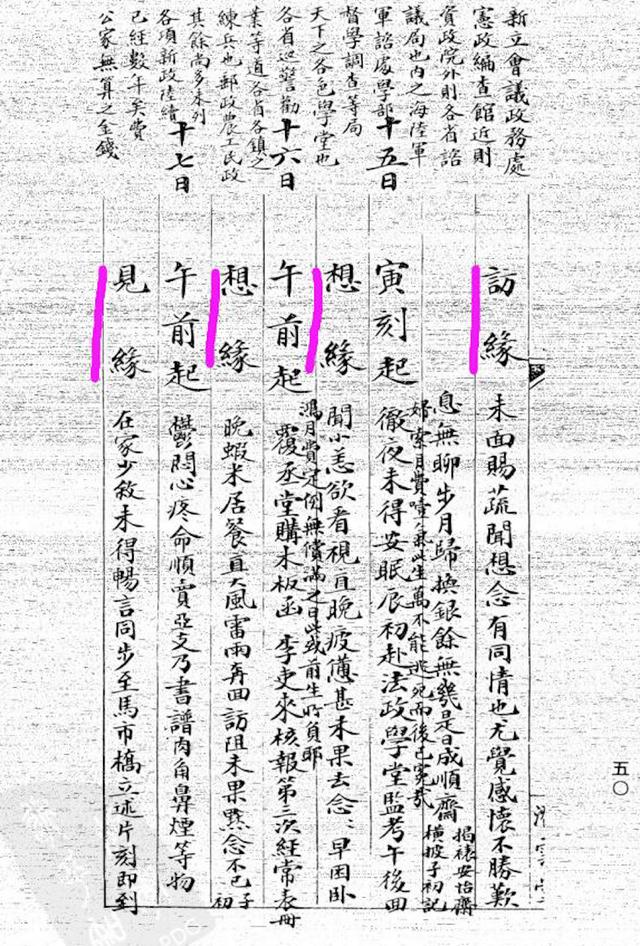 新立會議政務處
憲政編查館近則
資政院外則各省諮
議局也內之海陸軍
軍諮處學部
督學調查等局
天下之各色學堂也
各省巡警勸
業等道各省各鎮之
練兵也郵政農工民政
其餘尚多未列
各項新政陸續
已經數年矣費
公家無算之金錢
訪緣 未面賜蔬聞想念有同情也尤覺感懷不勝歎
息無聊步月歸換銀餘無幾是日成順齋
揭裱安怡齋
橫披子初記
十五日 寅刻起 徹夜未得安眠辰初赴法政學堂監考午後回
婦索月費
此生萬不能逃死而後已冤哉
想緣 聞小恙欲看視直晚疲憊甚未果去念念早困臥
鴻月費定例無償滿之日此或前生所負耶
十六日 午前起 覆丞堂購木板函 李吏來核報第三次經常表冊
想緣 晚蝦米居餐直大風雷雨奔回訪阻未果黙念不已
子初
十七日 午前起 鬱悶心疼命順賣亞支乃書譜肉角鼻煙等物
見緣 在家少敘未得暢言同步至馬市橋立述片刻即到
五〇